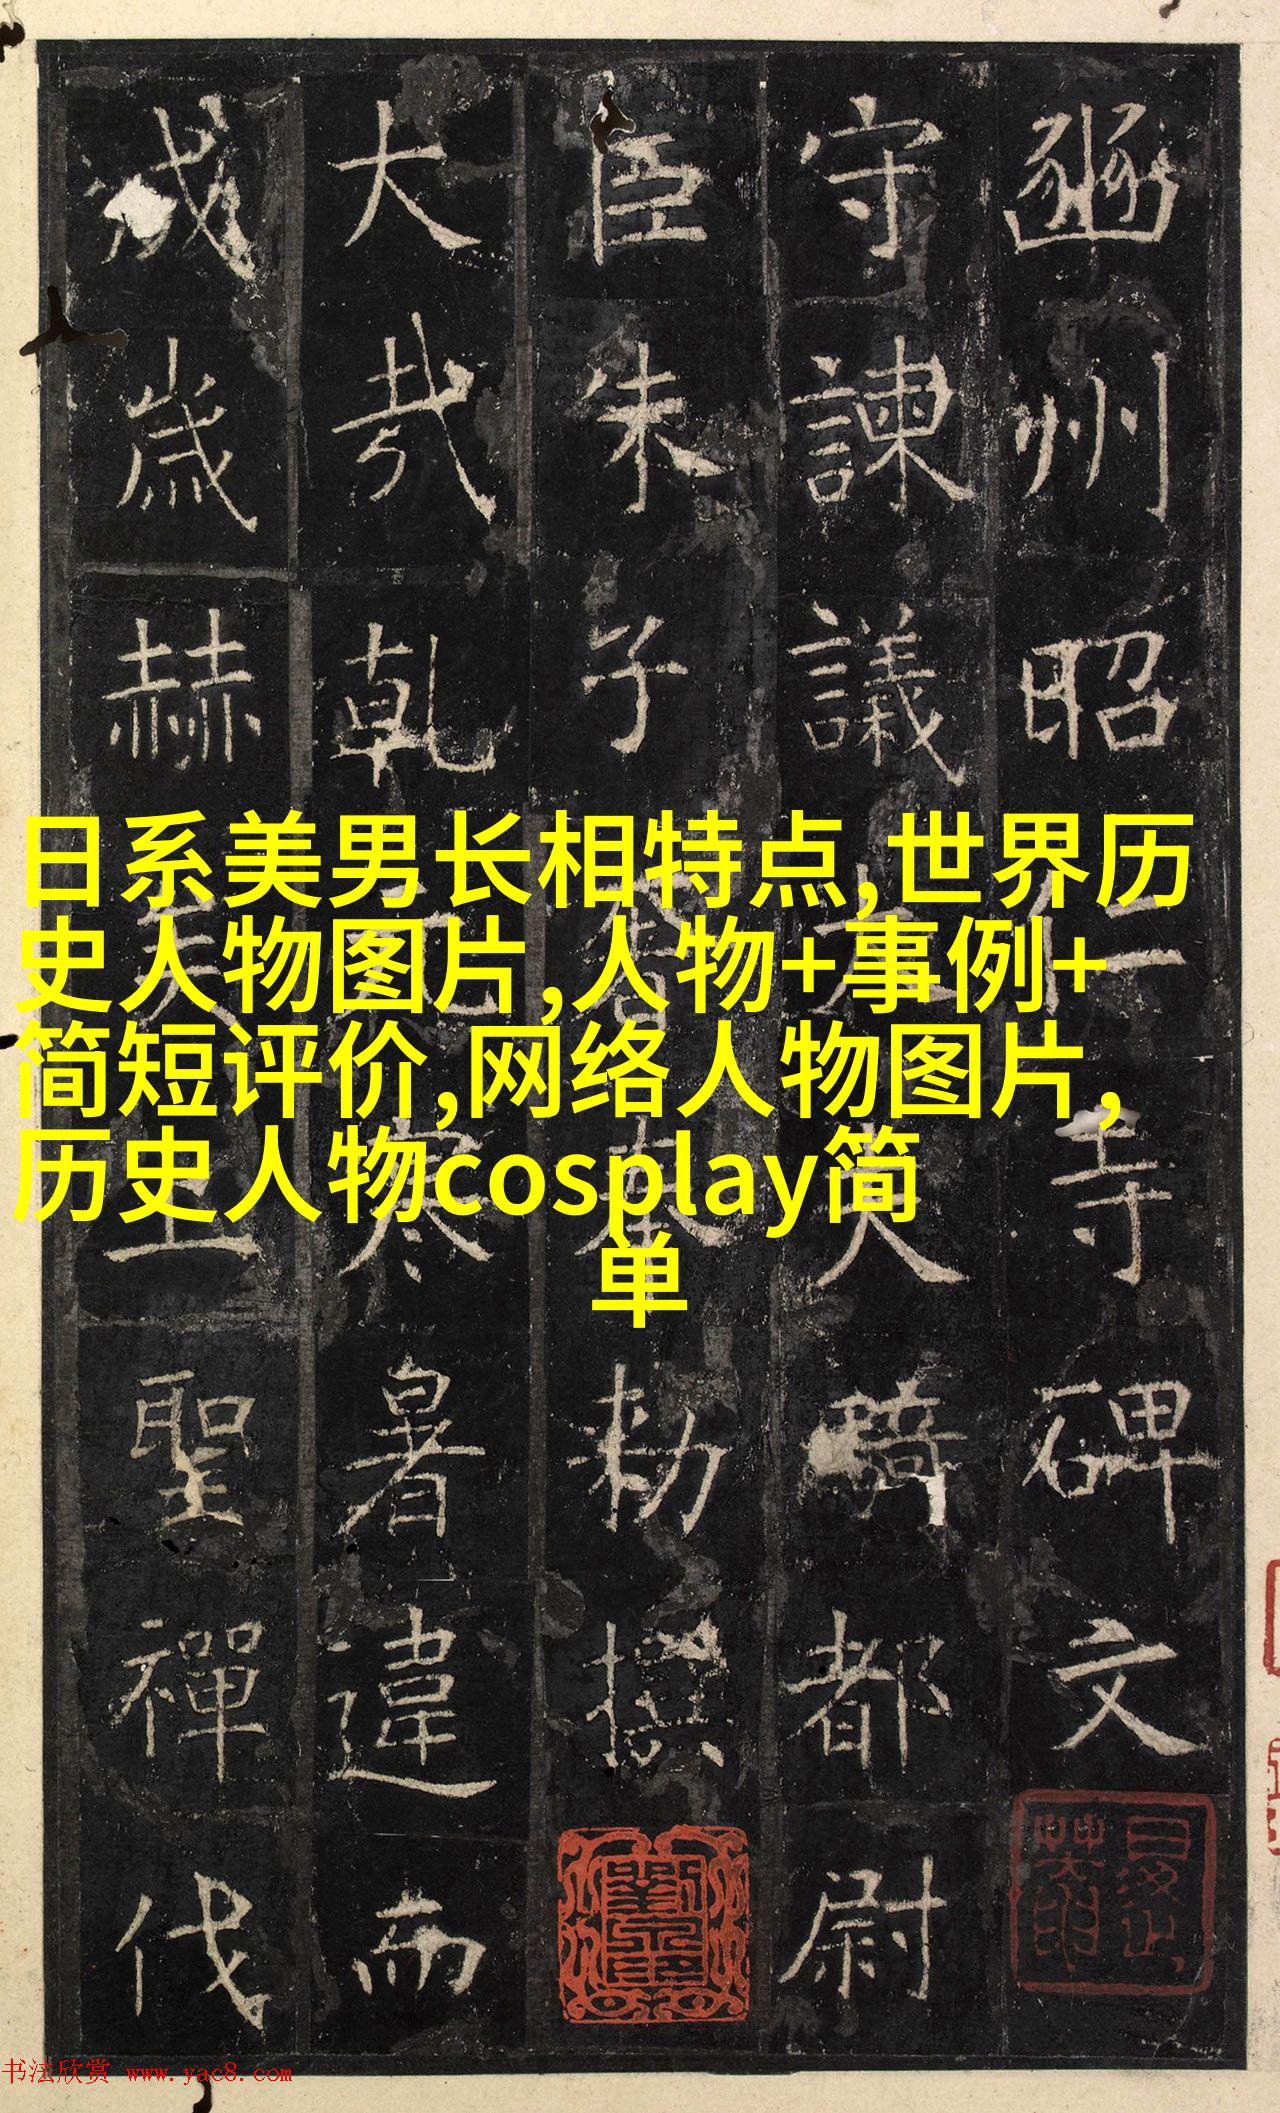 豳州昭仁寺碑文
守諫議大夫騎都尉
臣朱子奢奉勑撰
大哉乾元寒暑違而
成歲赫矣上聖禪代
日系美男长相特点,世界历
史人物图片,人物+事例+
简短评价,网络人物图片,
历史人物cosplay简
单
书法欣赏 www.yac8.com